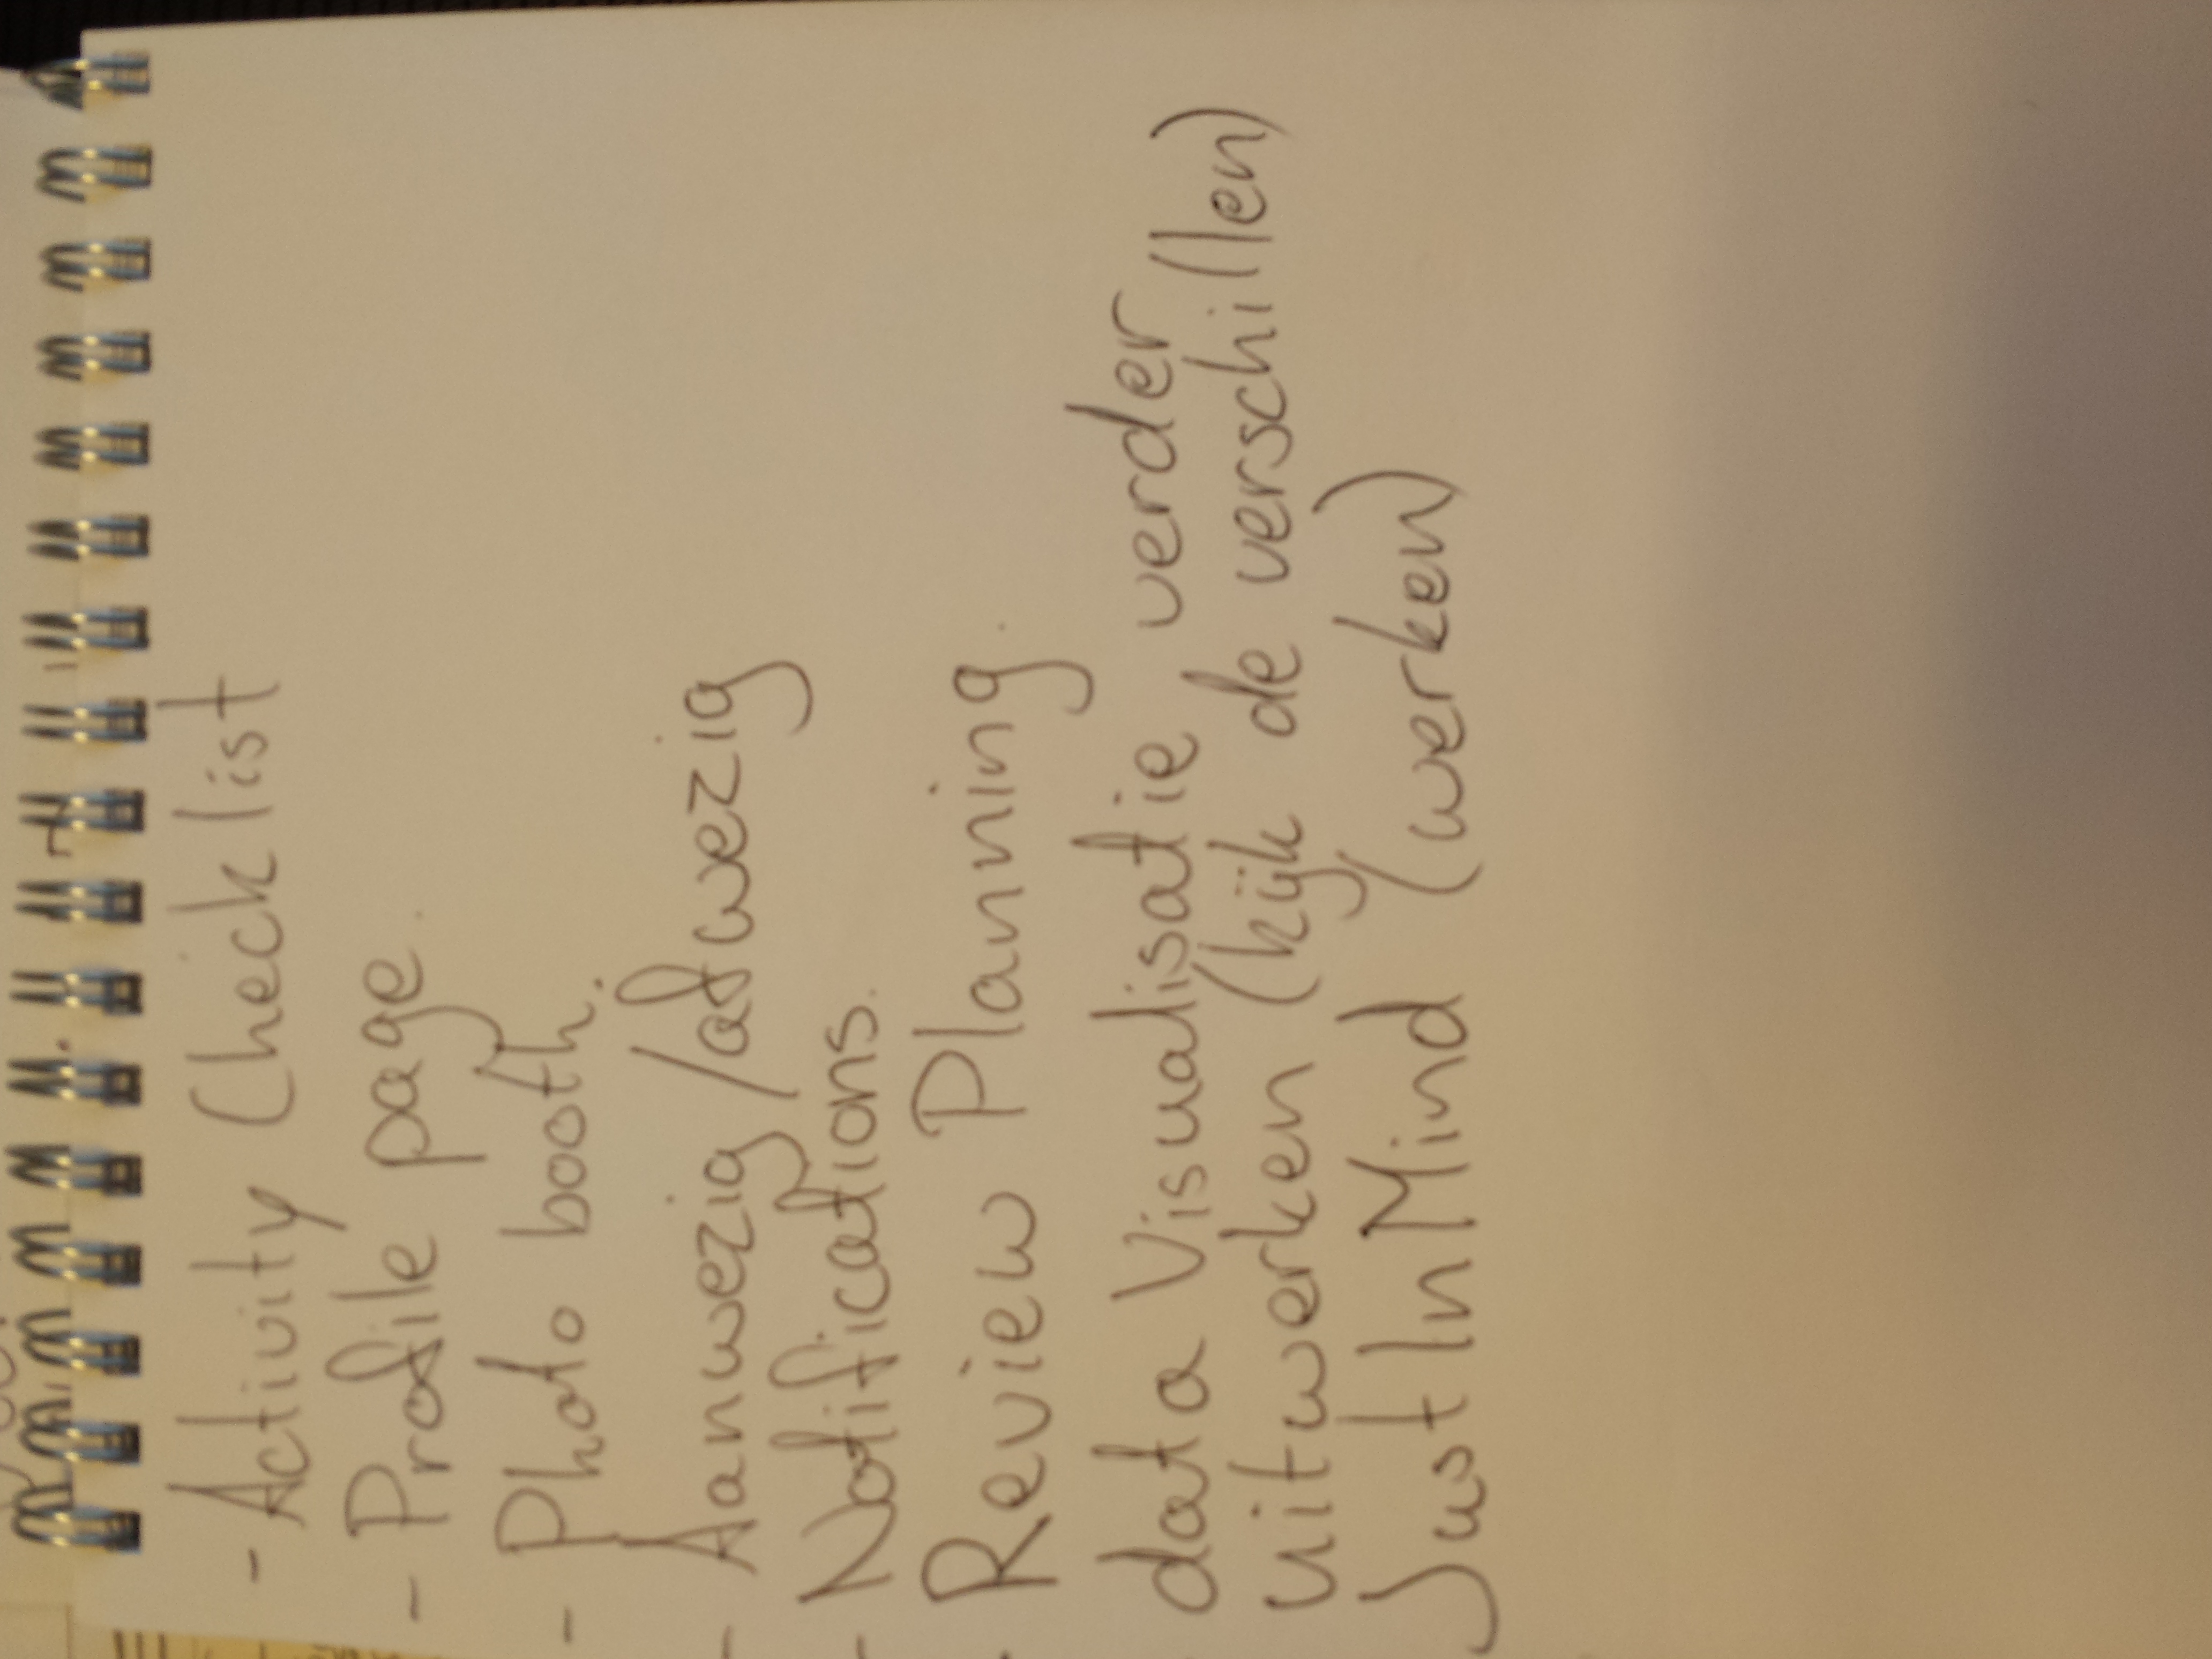 - Activity Checklist
- Profile page.
- Photo booth.
- Aanwezig/afwezig
- Notifications.
- Review Planning.
data Visualisatie verder
uitwerken (kijk de verschillen)
Just In Mind (werken)